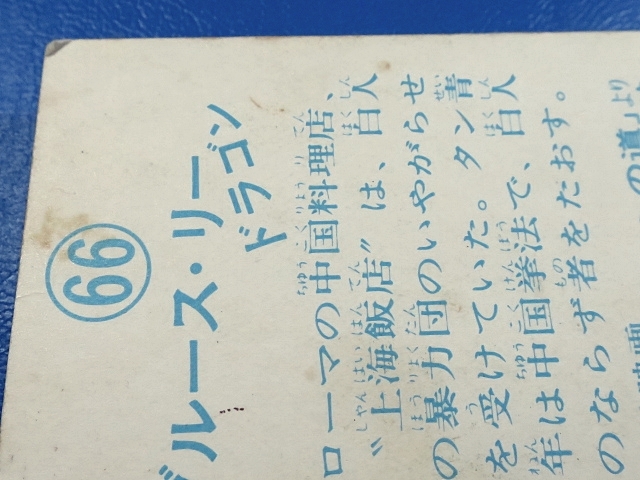 66
ブルース・リー
ドラゴン
ローマの中国料理店、
〝上海飯店〟は、白人
の暴力団のいやがらせ
を受けていた。タン青
年は中国拳法で、白人
のならず者をたおす。
の道」より